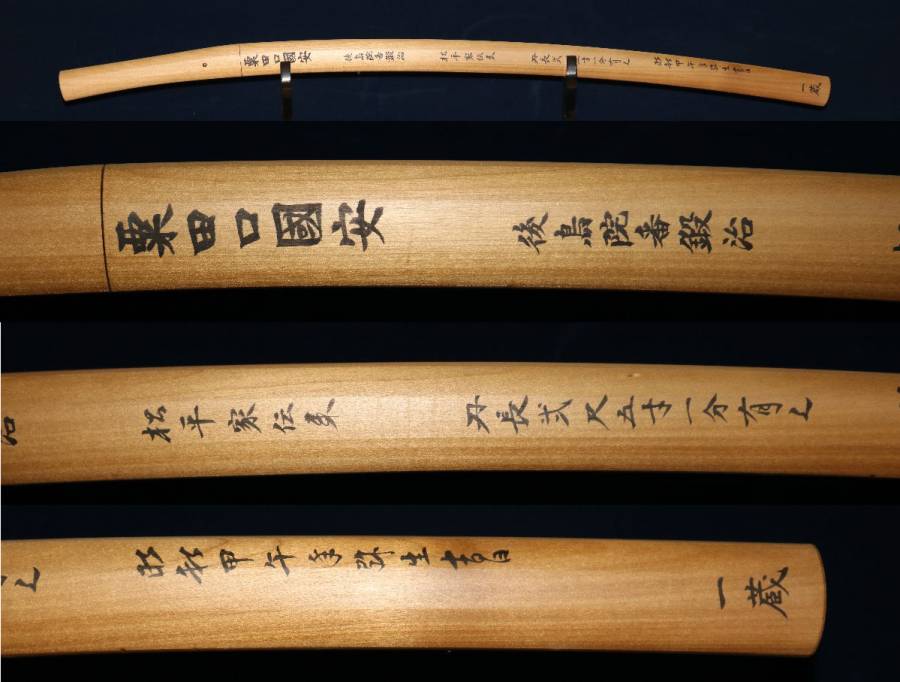 粟田口國安
後鳥院番鍛冶
松平家伝来
刃長弐尺五寸一分有之
昭和甲午年弥生吉日
一蔵